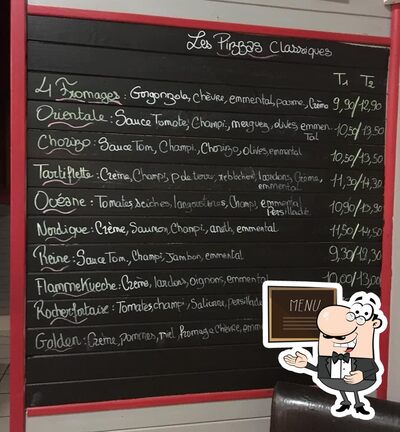 Les Pizzas Classiques
T1 T2
4 Fromages : Gorgonzola, chèvre, emmental, parme, Crème 9,90/12,90
Orientale : Sauce Tomate, Champi, merguez, olives, emmental 10,50/13,50
Chorizo : Sauce Tom, Champi, Chorizo, Olives, emmental 10,50/13,50
Tartiflette : Crème, Champi, p de terre, reblochon, lardons, Crème, emmental 11,30/14,30
Océane : Tomates, seiches, langoustines, Champi, emmental Persillade 10,90/13,90
Nordique : Crème, Saumon, Champi, aneth, emmental 11,50/14,50
Reine : Sauce Tom, Champi, Jambon, emmental 9,30/12,30
Flammekueche : Crème, lardons, oignons, emmental 10,00/13,00
Rochefortaise : Tomates, champi, Saliconne, persillade
Golden : Crème, pommes, miel, fromage Chèvre, emm
MENU